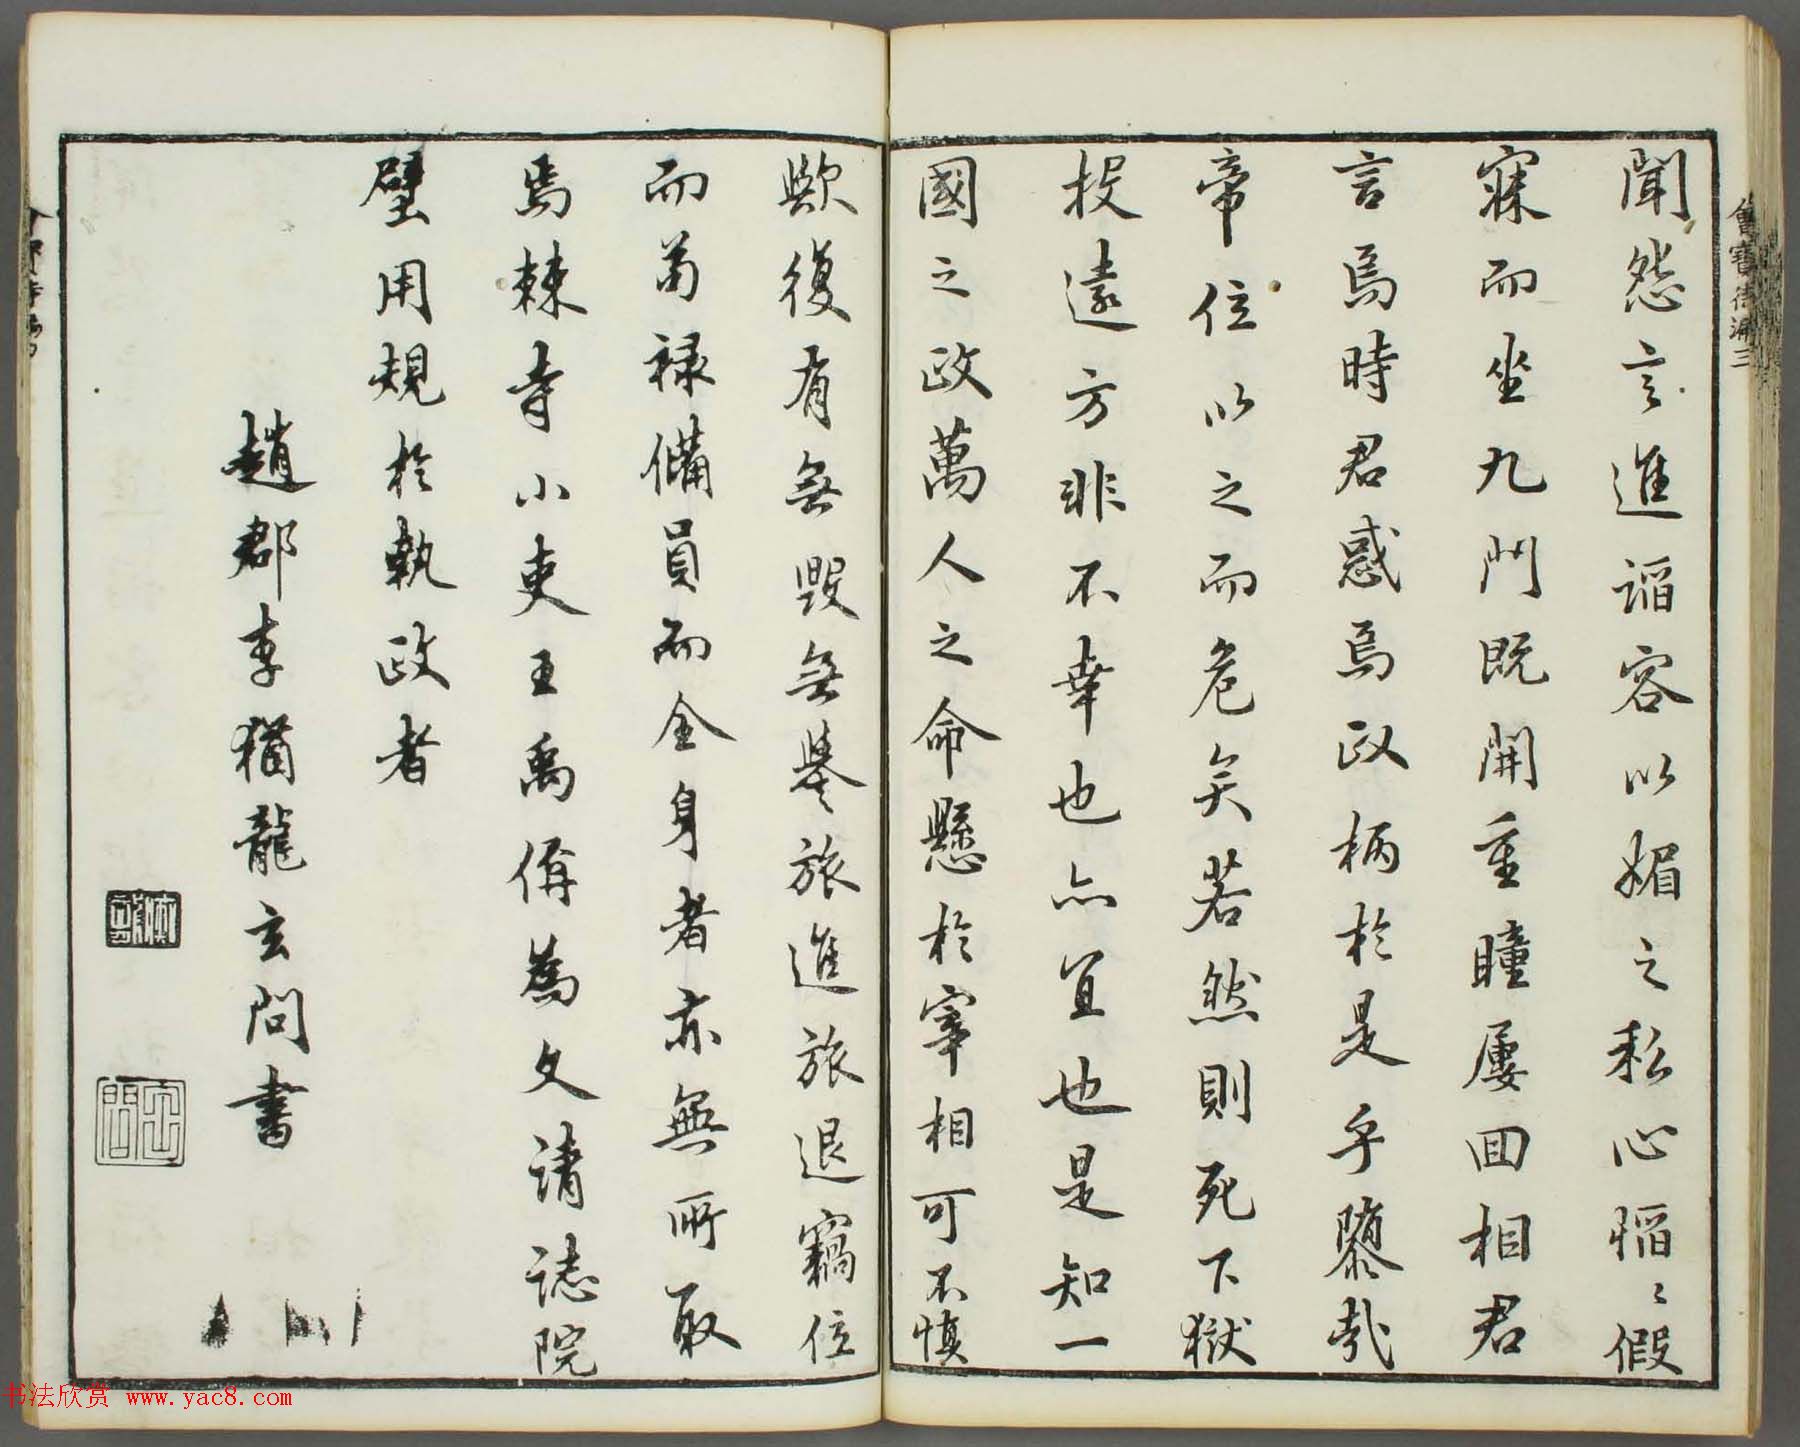 聞怨言進謟容以媚之私心慆〻假
寐而坐九門既開重瞳屢回相君
言焉時君惑焉政柄於是乎隳哉
帝位以之而危矣若然則死下獄
投遠方非不幸也亦宜也是知一
國之政萬人之命懸於宰相可不慎
歟復有無毀無譽旅進旅退竊位
而苟祿備員而全身者亦無所取
焉棘寺小吏王禹偁為文請誌院
壁用規於執政者
趙郡李猶龍玄問書
书法欣赏 www.yac8.com